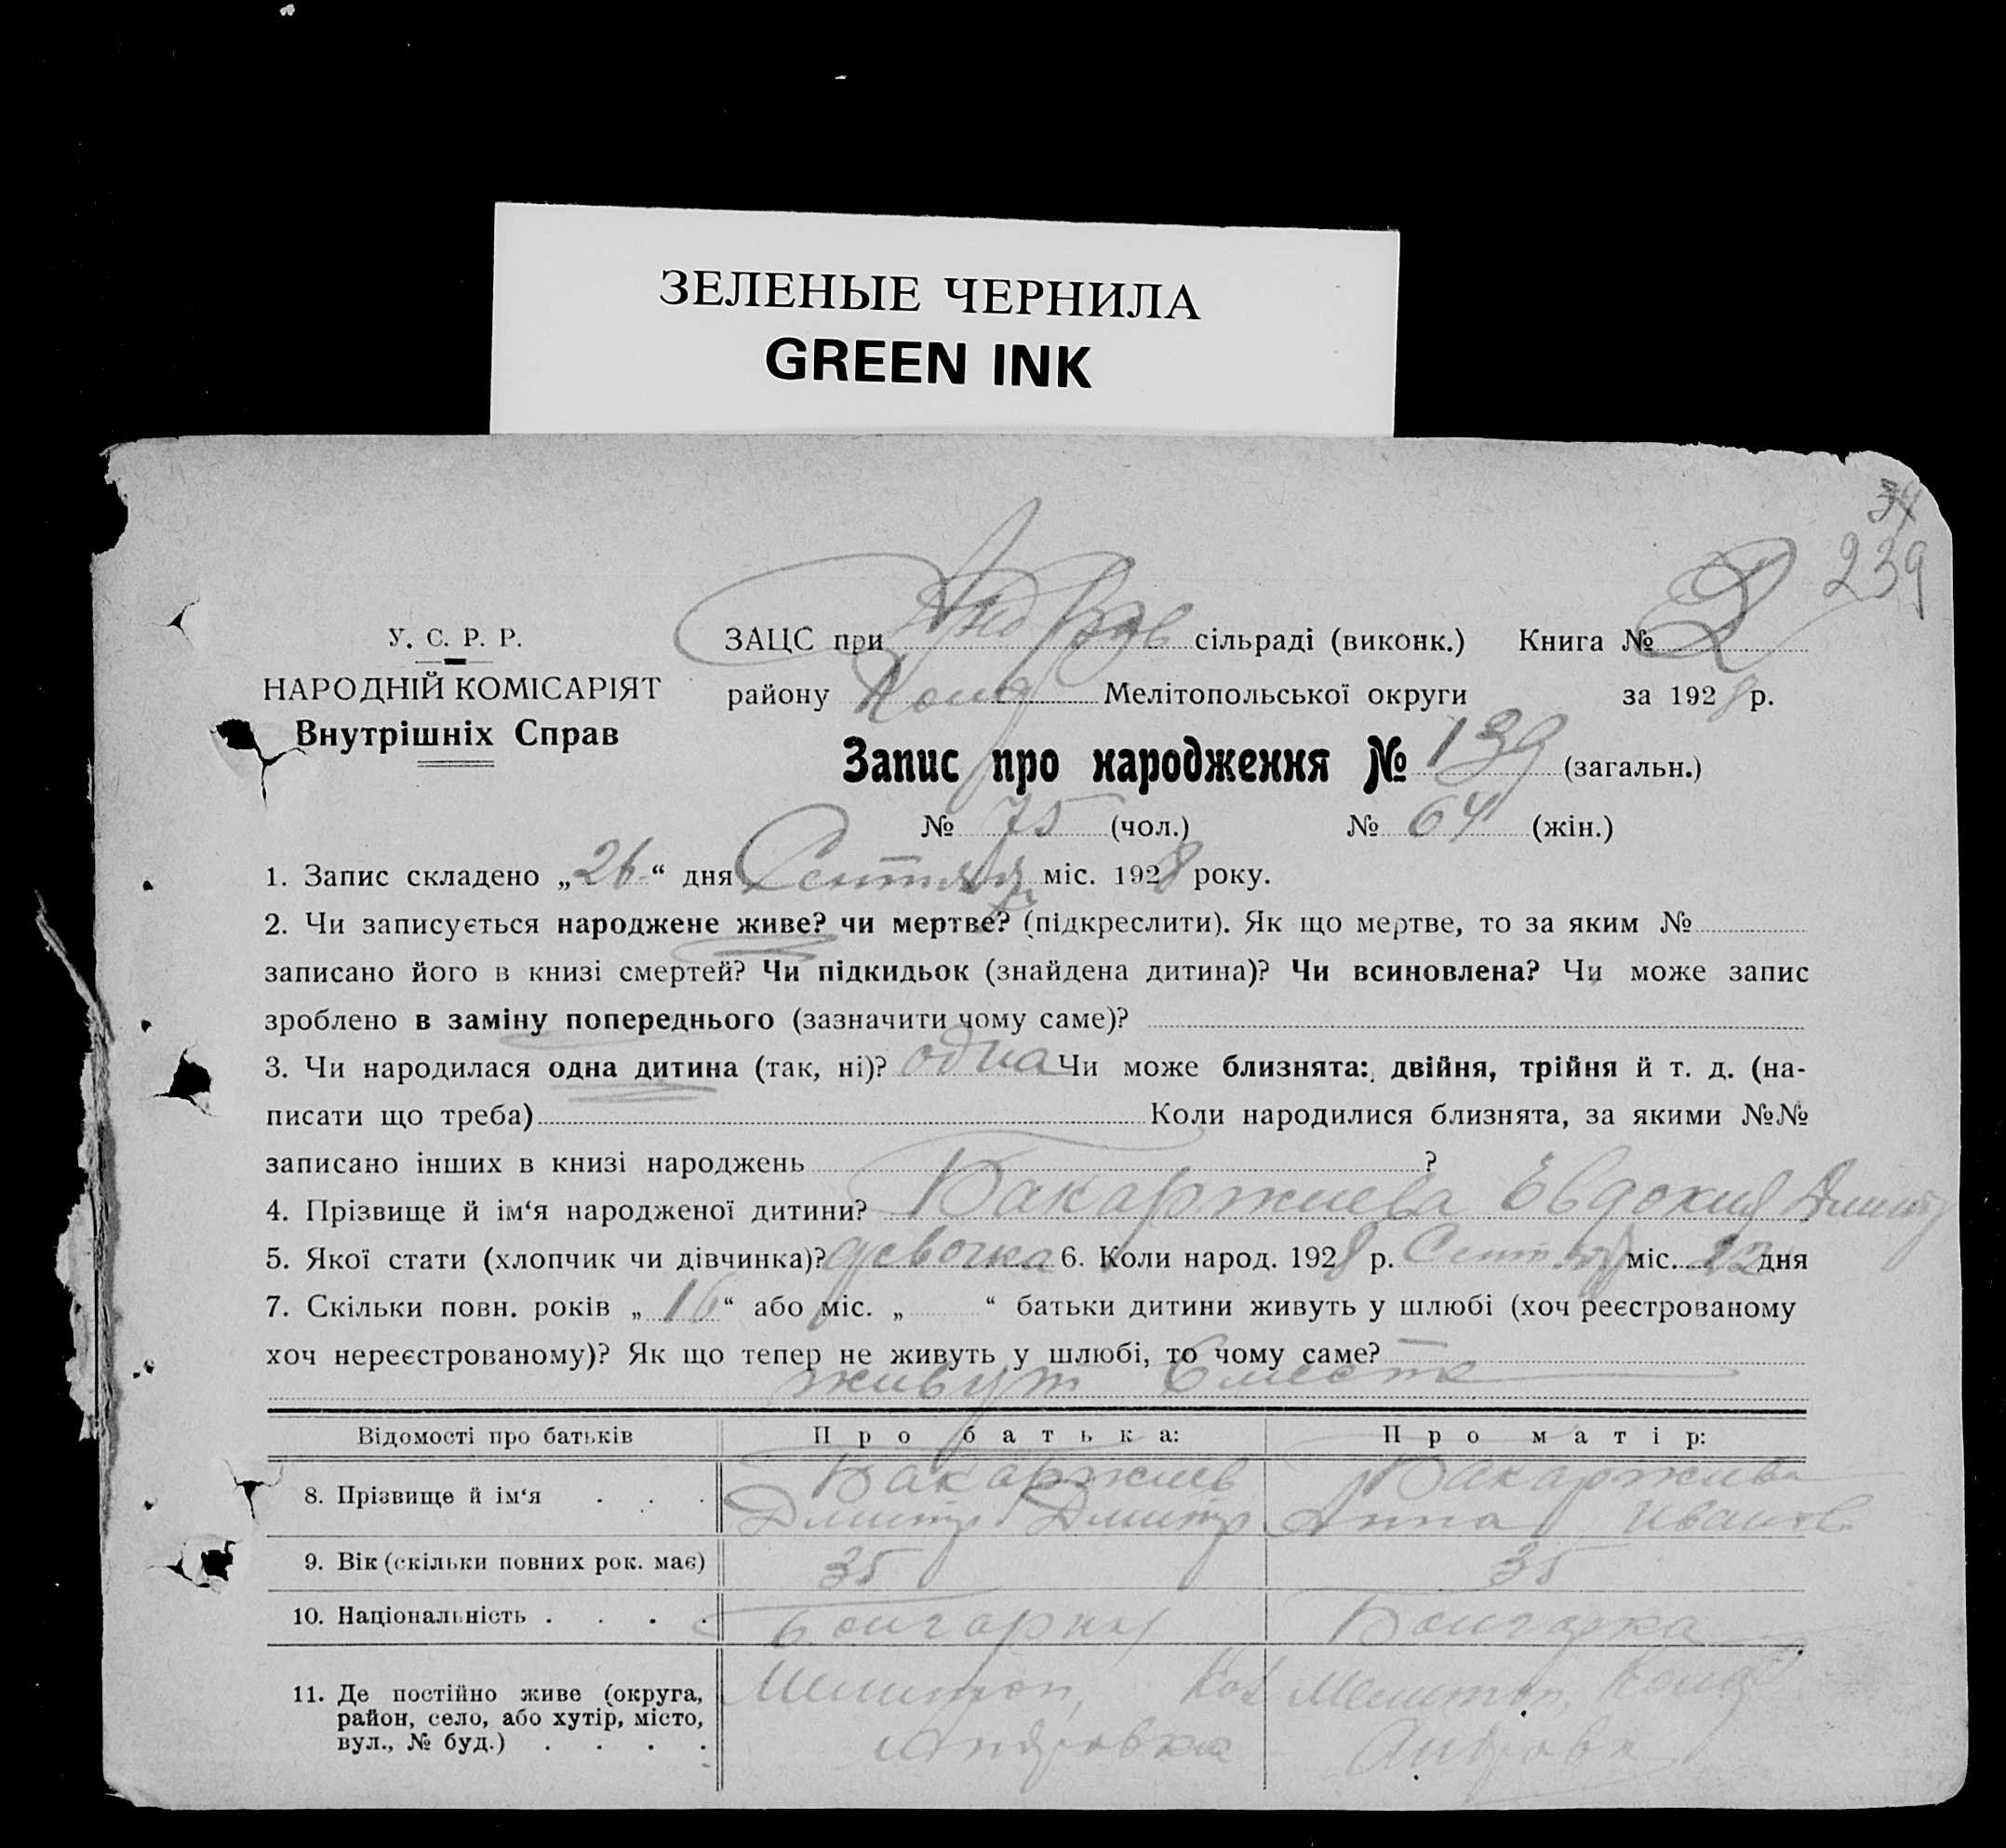 ЗЕЛЕНЫЕ ЧЕРНИЛА
GREEN INK
34
239
У. С. Р. Р.
НАРОДНІЙ КОМІСАРІЯТ
Внутрішніх Справ
ЗАЦС при Андров сільраді (виконк.) Книга № 2
району Мелітопольської округи за 1928 р.
Запис про народження № 139 (загальн.)
№ 75 (чол.) № 64 (жін.)
1. Запис складено „26“ дня міс. 1928 року.
2. Чи записується народжене живе? чи мертве? (підкреслити). Як що мертве, то за яким №
записано його в книзі смертей? Чи підкидьок (знайдена дитина)? Чи всиновлена? Чи може запис
зроблено в заміну попереднього (зазначити чому саме)?
3. Чи народилася одна дитина (так, ні)? одна Чи може близнята: двійня, трійня й т. д. (на-
писати що треба) Коли народилися близнята, за якими №№
записано інших в книзі народжень ?
4. Прізвище й ім‘я народженої дитини? Бакаржиева Евдокия Дмитр
5. Якої стати (хлопчик чи дівчинка)? девочка 6. Коли народ. 1928 р. міс. 22 дня
7. Скільки повн. років „16“ або міс. „ “ батьки дитини живуть у шлюбі (хоч реєстрованому
хоч нереєстрованому)? Як що тепер не живуть у шлюбі, то чому саме?
живут вместе
Відомості про батьків Про батька: Про матір:
8. Прізвище й ім‘я . . . Бакаржиев Дмитр Дмитр Бакаржива Анна Иванов
9. Вік (скільки повних рок. має) 35 35
10. Національність . . . . Болгарин Болгарка
11. Де постійно живе (округа, Мелитоп, Мелитоп,
район, село, або хутір, місто, Андровка
вул., № буд.) . . . .